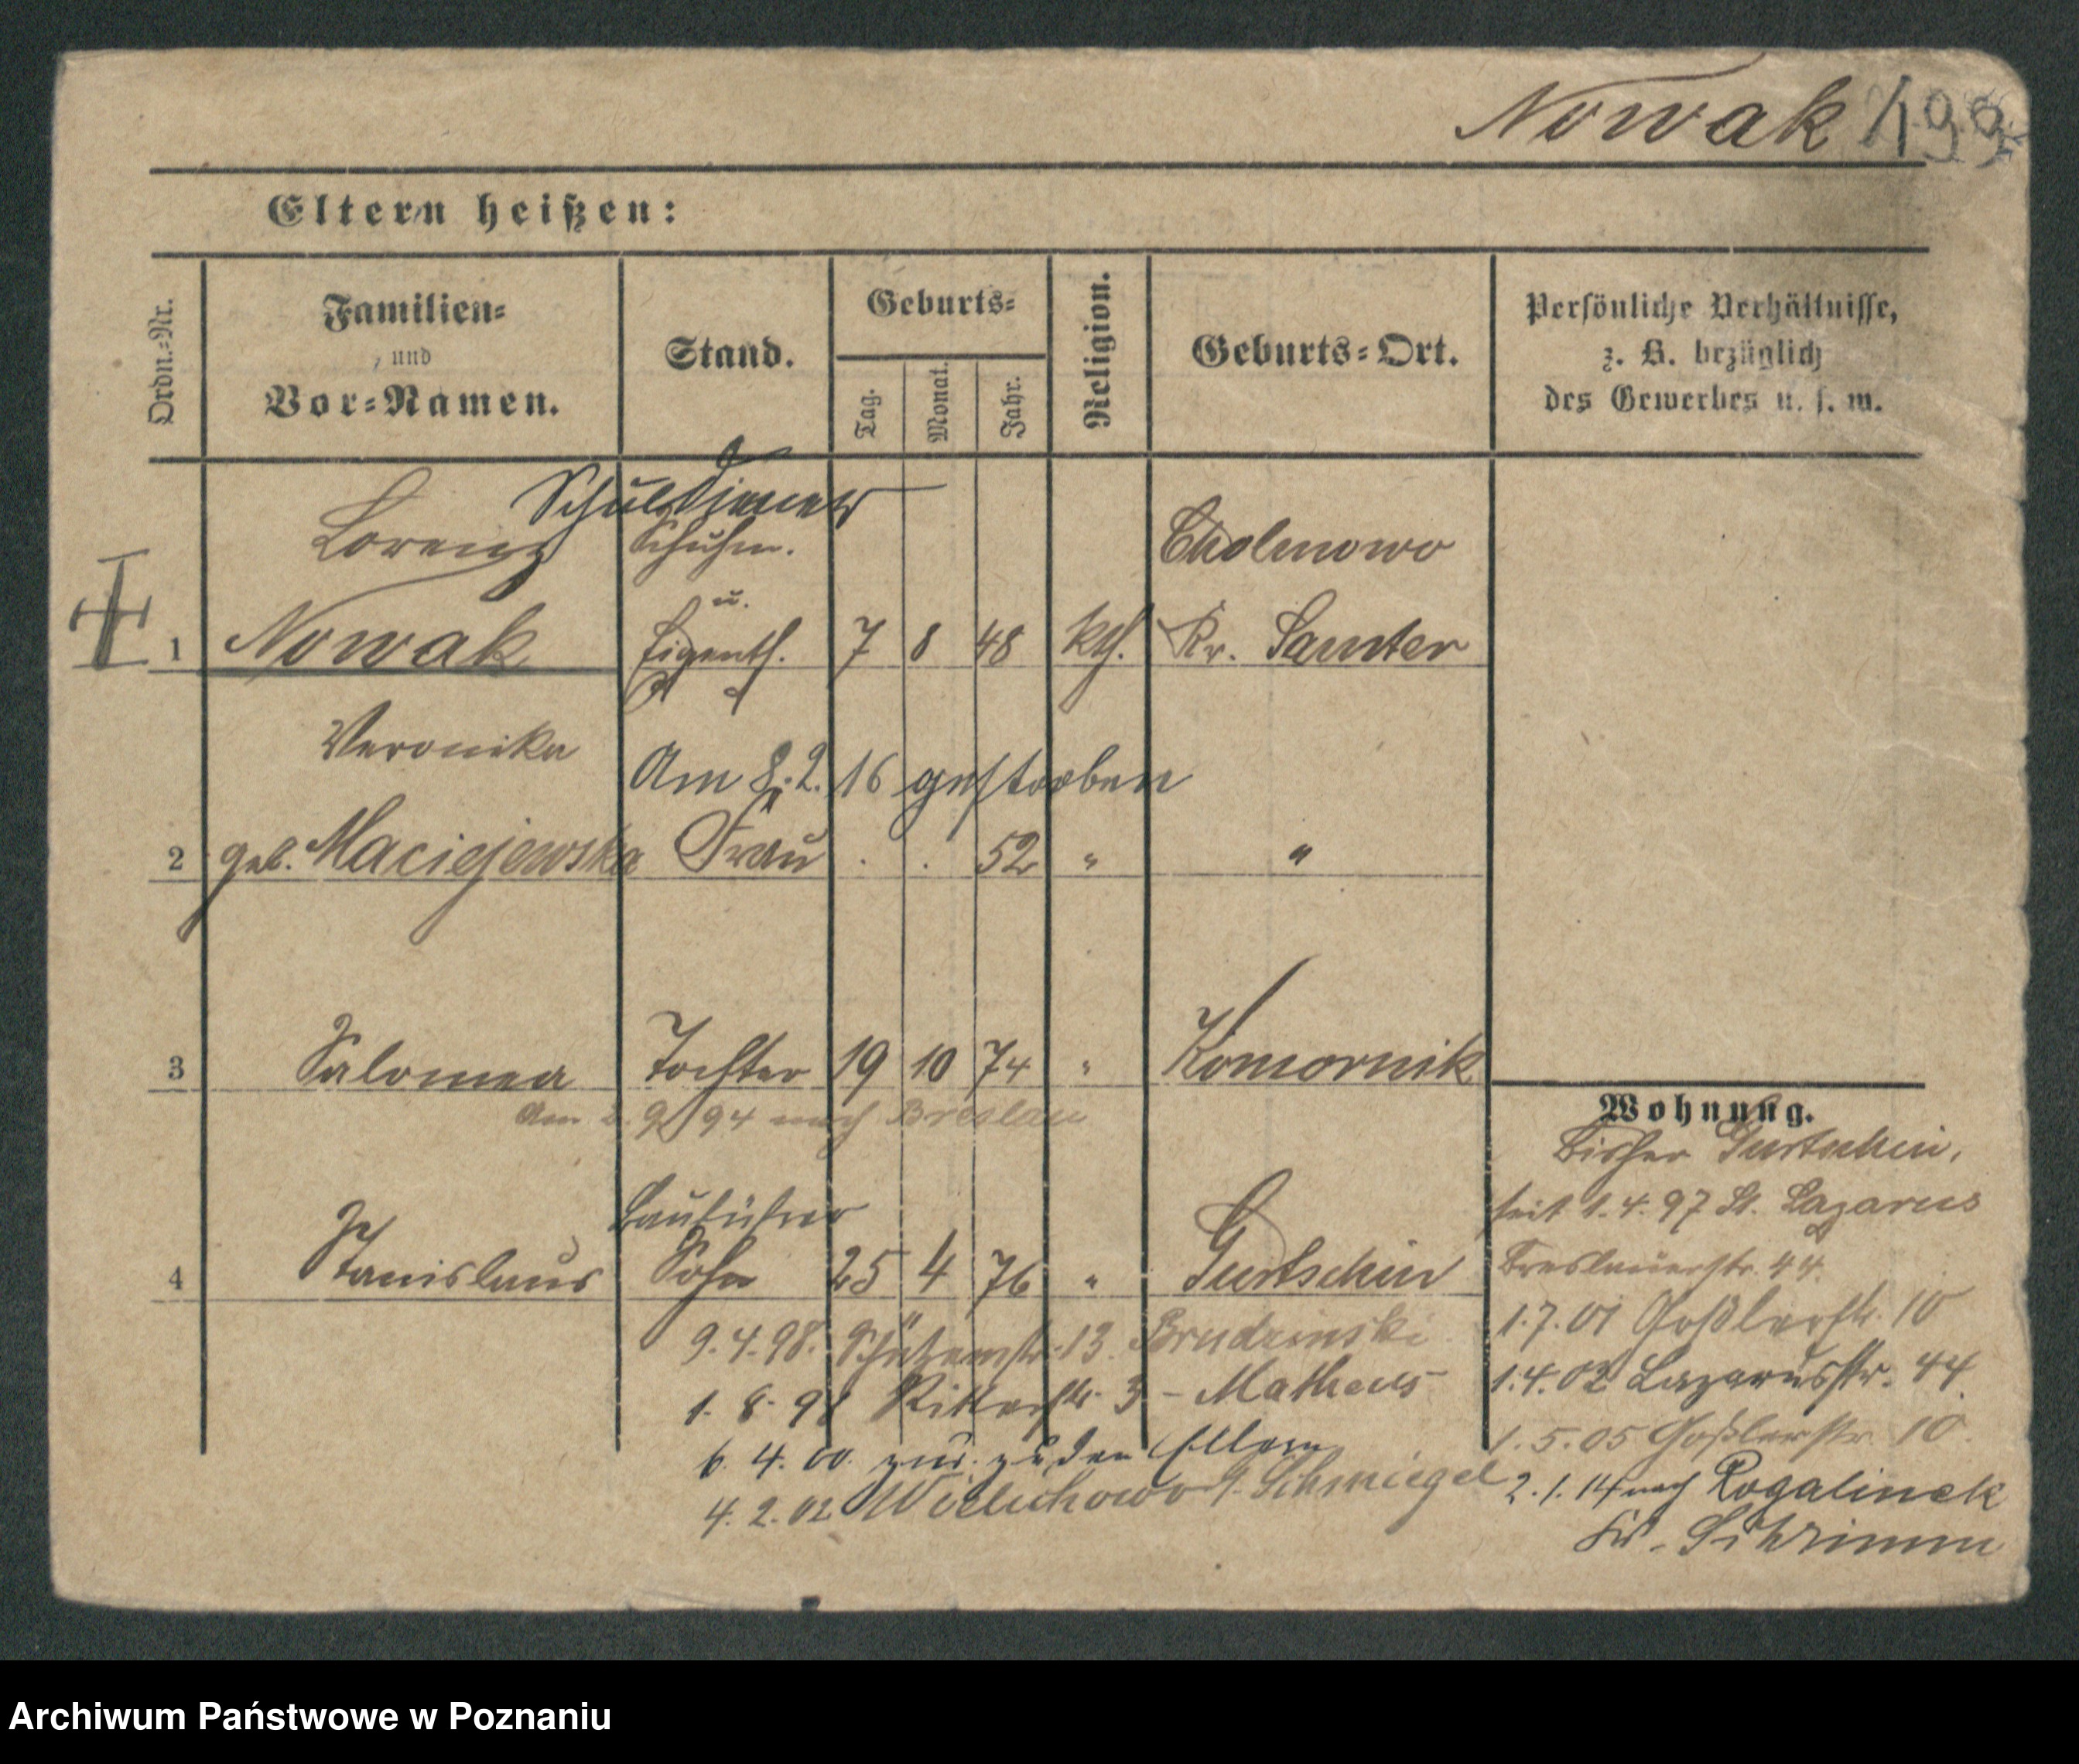 Nowak 199
Eltern heißen:
Ordn.-Nr.
Familien-
und
Vor-Namen.
Stand.
Geburts-
Tag.
Monat.
Jahr.
Religion.
Geburts-Ort.
Persönliche Verhältnisse,
z. B. bezüglich
des Gewerbes u. s. w.
Schuldiener
Lorenz Schuhm. Cholmowo
u.
1 Nowak Eigenth. 7 8 48 kth. Kr. Samter
Veronika
Am 8.2.16 gestorben
2 geb. Maciejewska Frau . . 52 " "
3 Salomea Tochter 19 10 74 " Komornik
Am 2.9.94 nach Breslau
Wohnung.
Bisher Gurtschin,
seit 1.4.97 St. Lazarus
Breslauerstr. 44.
1.7.01 Goßlerstr. 10
1.4.02 Lazarusstr. 44.
1.5.05 Goßlerstr. 10.
2.1.14 nach Rogalinek
Kr. Schrimm
Bauführer
4 Stanislaus Sohn 25 4 76 " Gurtschin
9.4.98. Schützenstr. 13. Brudzinski
1.8.98 Ritterstr. 3 - Matheus
6.4.00. zur. zu den Eltern
4.2.02 Wielichowo Schmiegel
Archiwum Państwowe w Poznaniu